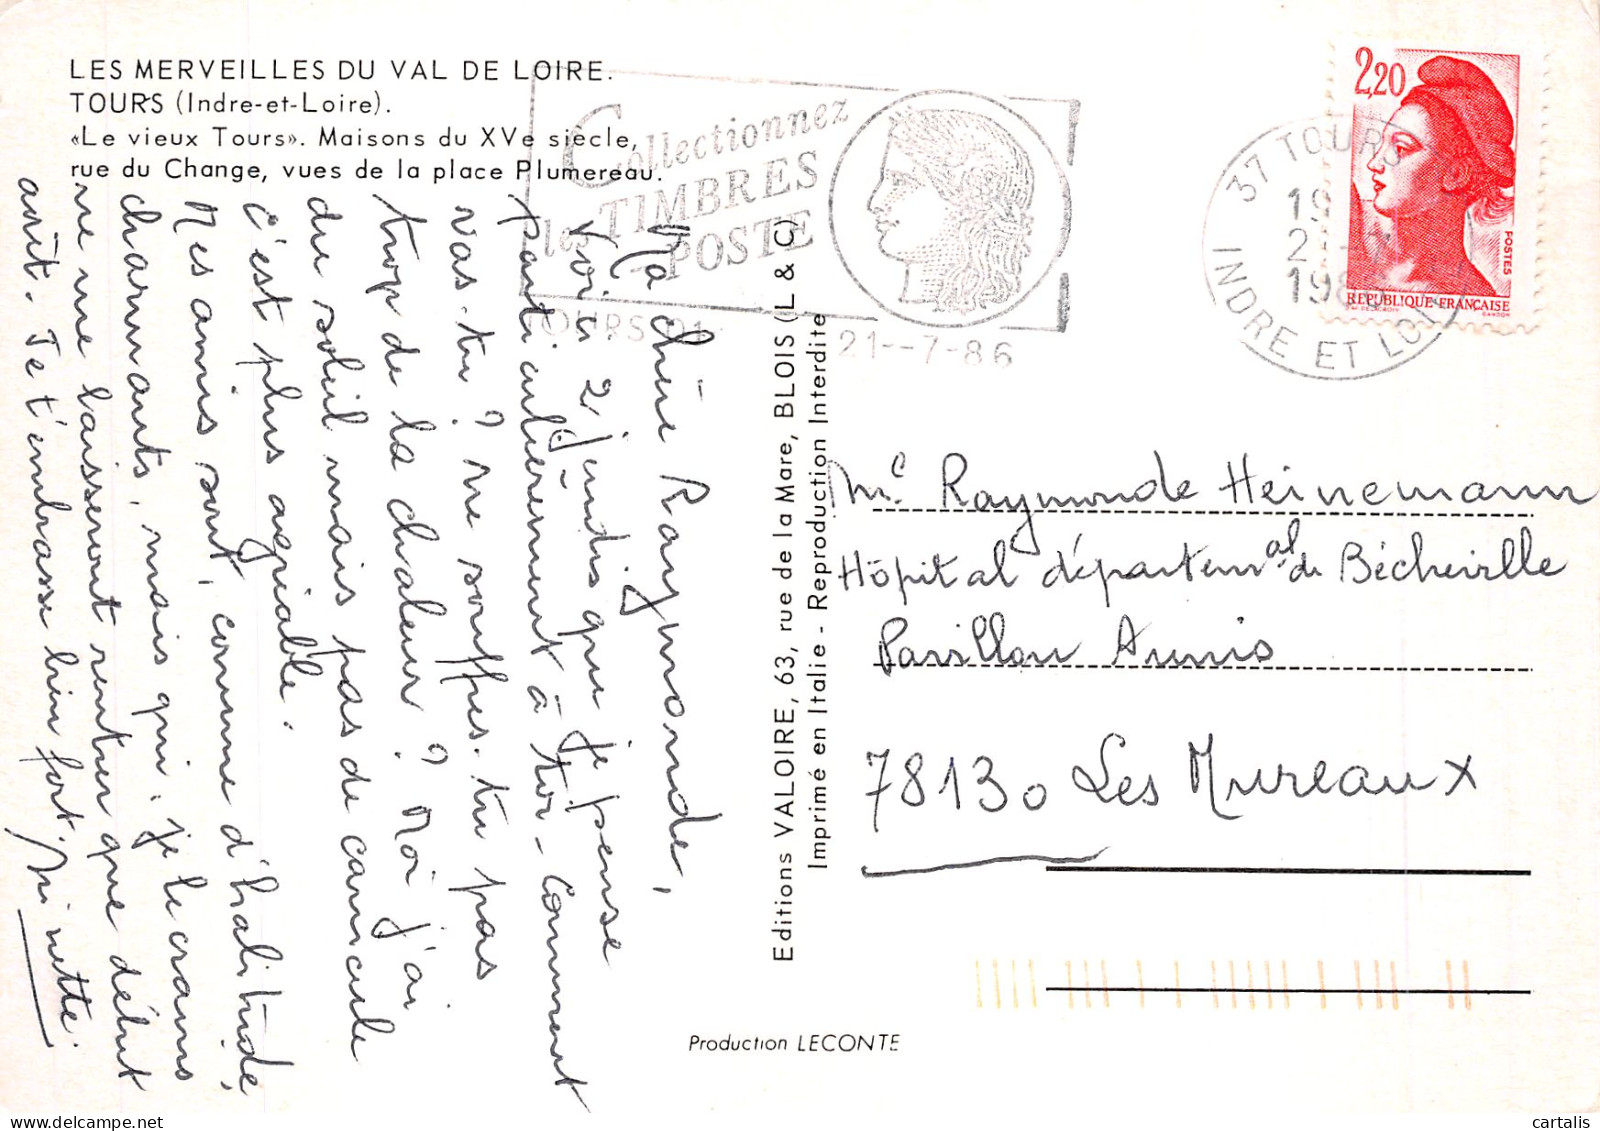 LES MERVEILLES DU VAL DE LOIRE.
TOURS (Indre-et-Loire).
«Le vieux Tours». Maisons du XVe siècle,
rue du Change, vues de la place Plumereau.
Collectionnez
les TIMBRES
POSTE
TOURS 01
21--7-86
37 TOURS
INDRE ET LOIRE
2,20
POSTES
REPUBLIQUE FRANÇAISE
GANDON
Ma chère Raymonde,
Voici 2 jeudis que je pense
particulièrement à toi. Comment
vas-tu ? ne souffres-tu pas
trop de la chaleur ? Moi j'ai
du soleil mais pas de canicule
c'est plus agréable.
Mes amis sont, comme d'habitude,
charmants, mais qui, je le crains
ne me laisseront rentrer que début
août. Je t'embrasse bien fort.
Editions VALOIRE, 63, rue de la Mare, BLOIS (L & C)
Imprimé en Italie - Reproduction Interdite
Mme Raymonde Heinemann
Hôpital départemal de Bécheville
Pavillon Aunis
78130 Les Mureaux
Production LECONTE
cartalis